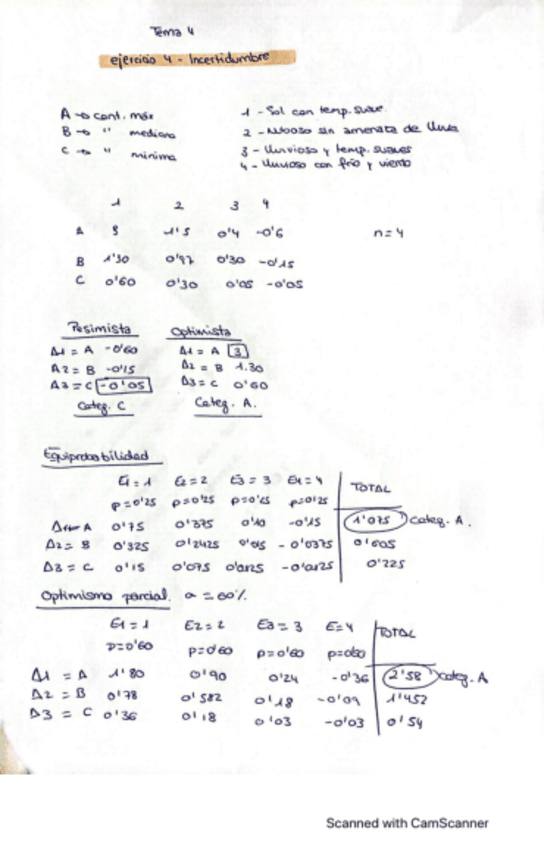 Tema 4
ejercicio 4 - Incertidumbre
A → cont. máx
B → " mediana
C → " mínima
1 - Sol con temp. suave.
2 - Nuboso sin amenaza de lluvia
3 - lluvioso y temp. suaves
4 - lluvioso con frío y viento
1 2 3 4
A 3 1'5 0'4 -0'6
n = 4
B 1'30 0'97 0'30 -0'15
C 0'60 0'30 0'05 -0'05
Pesimista Optimista
Δ1 = A -0'60 Δ1 = A 3
A2 = B -0'15 Δ2 = B 1.30
A3 = C -0'05 Δ3 = C 0'60
Categ. C Categ. A.
Equiprobabilidad
E1 = 1 E2 = 2 E3 = 3 E4 = 4 TOTAL
p = 0'25 p = 0'25 p = 0'25 p = 0'25
A 0'75 0'375 0'10 -0'15 1'075 Categ. A.
Δ2 = B 0'325 0'2425 0'075 -0'0375 0'605
Δ3 = C 0'15 0'075 0'0125 -0'0125 0'225
Optimismo parcial. α = 60%
E1 = 1 E2 = 2 E3 = 3 E=4 TOTAL
p=0'60 p=0'60 p=0'60 p=0'60
Δ1 = A 1'80 0'90 0'24 -0'36 2'58 Categ. A
Δ2 = B 0'78 0'582 0'18 -0'09 1'452
Δ3 = C 0'36 0'18 0'03 -0'03 0'54
Scanned with CamScanner